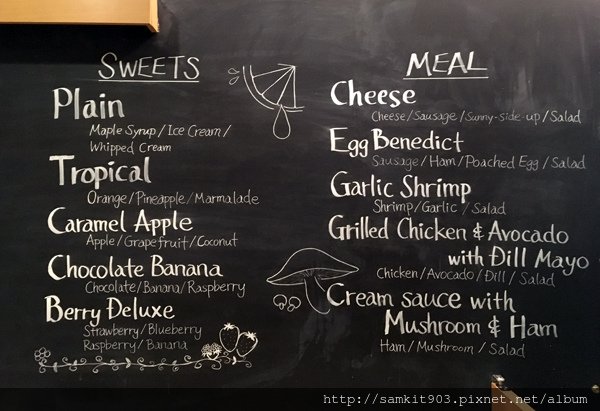 SWEETS
Plain
Maple Syrup / Ice Cream /
Whipped Cream
Tropical
Orange / Pineapple / Marmalade
Caramel Apple
Apple / Grapefruit / Coconut
Chocolate Banana
Chocolate / Banana / Raspberry
Berry Deluxe
Strawberry / Blueberry
Raspberry / Banana
MEAL
Cheese
Cheese / Sausage / Sunny-side-up / Salad
Egg Benedict
Sausage / Ham / Poached Egg / Salad
Garlic Shrimp
Shrimp / Garlic / Salad
Grilled Chicken & Avocado
with Dill Mayo
Chicken / Avocado / Dill / Salad
Cream sauce with
Mushroom & Ham
Ham / Mushroom / Salad
http://samkit903.pixnet.net/album